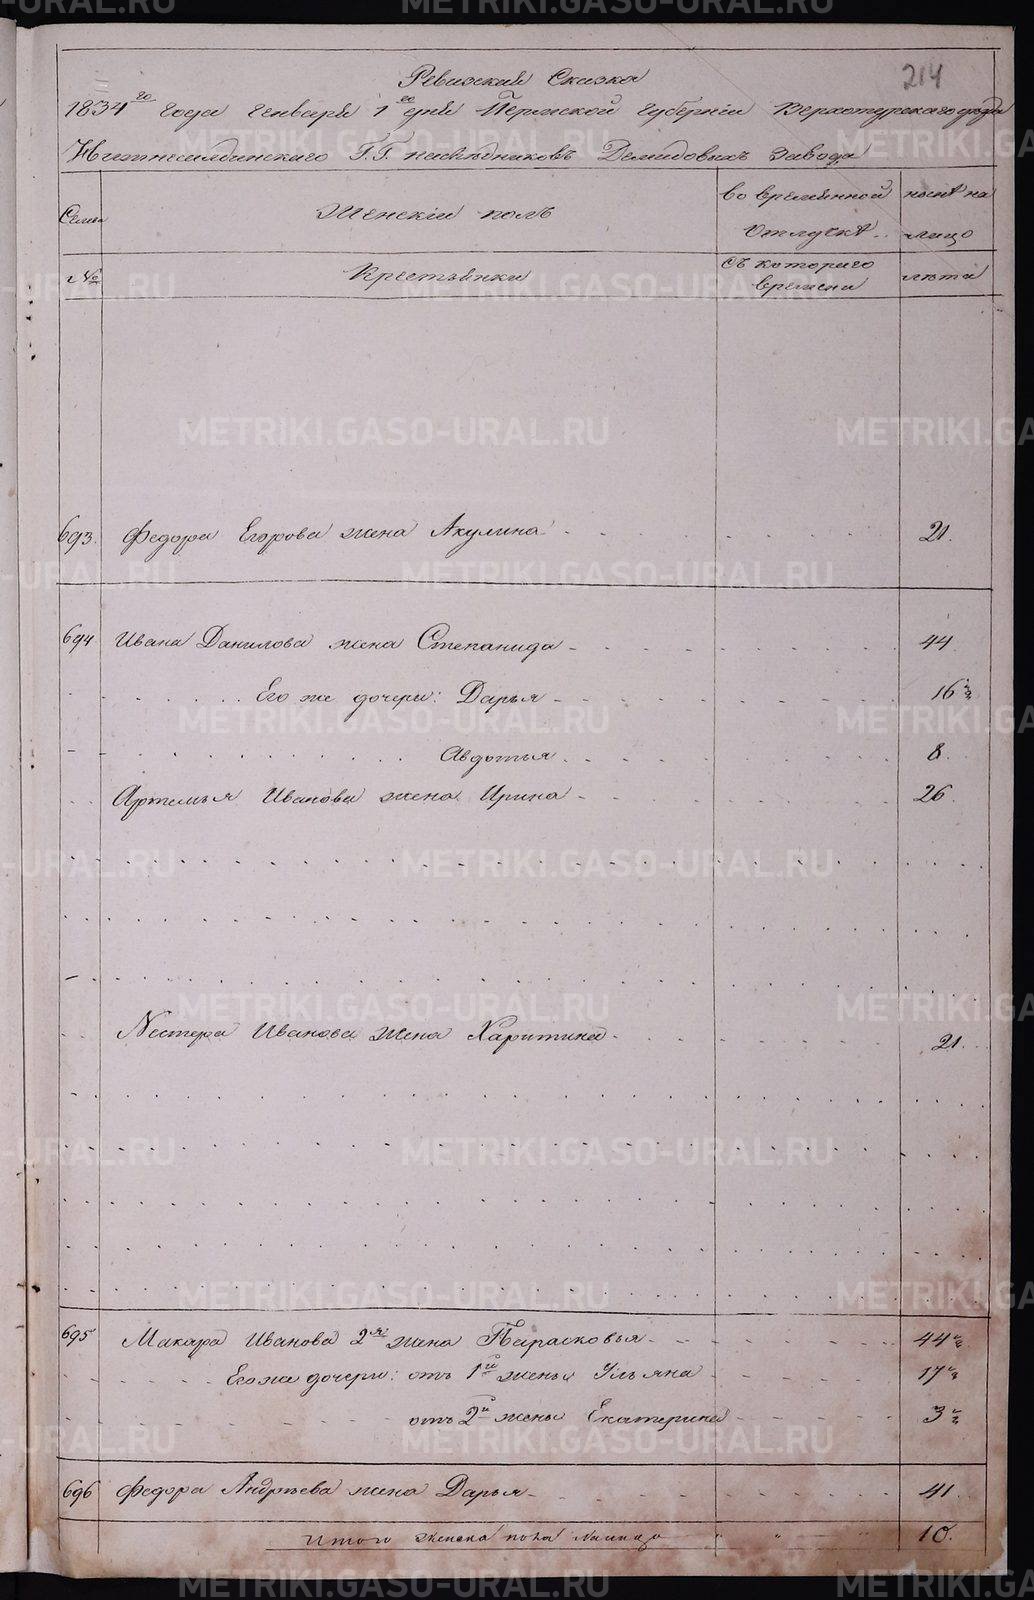 214
Ревизская Сказка
1834го года Генваря 1го дня Пермской Губернии Верхотурскаго уезда
Нижнесалдинскаго Г.Г. наследниковъ Демидовыхъ завода
Семьи
Женскій полъ
во временной отлучкѣ
ныне на лицо
№
Крестьянки
съ котораго времени
лѣта
693. Федора Егорова жена Акулина 21.
694 Ивана Данилова жена Степанида 44
Его же дочери: Дарья 16 ½
Авдотья 8.
Артемья Иванова жена Ирина 26.
Нестера Иванова жена Харитина 21.
695 Макара Иванова 2я жена Парасковья 44 ½
Его же дочери: отъ 1й жены Ульяна 17 ½
отъ 2й жены Екатерина 3 ½
696 Федора Андрѣева жена Дарья 41.
Итого женска пола налицо " " " 10.
METRIKI.GASO-URAL.RU